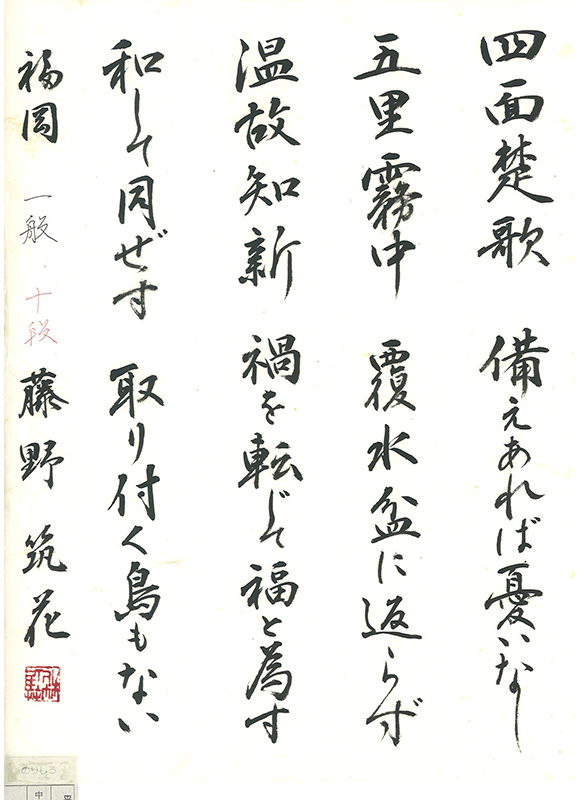 四面楚歌 備えあれば憂いなし
五里霧中 覆水盆に返らず
温故知新 禍を転じて福と為す
和して同ぜず 取り付く島もない
福岡 一般・十段 藤野 筑花
のりしろ
中